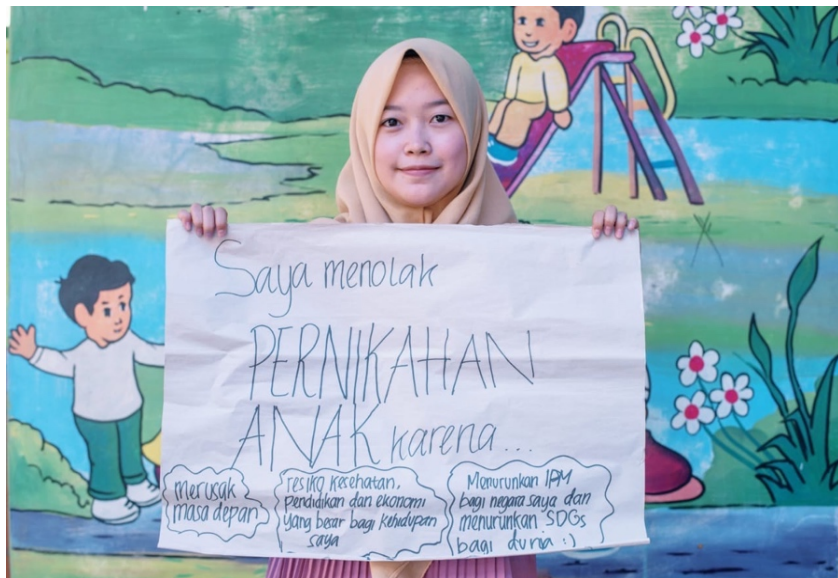 Saya menolak
PERNIKAHAN
ANAK karena...
merusak
masa depan
resiko kesehatan,
pendidikan dan ekonomi
yang besar bagi kehidupan
saya
Menurunkan IPM
bagi negara saya dan
menurunkan SDGs
bagi dunia :)